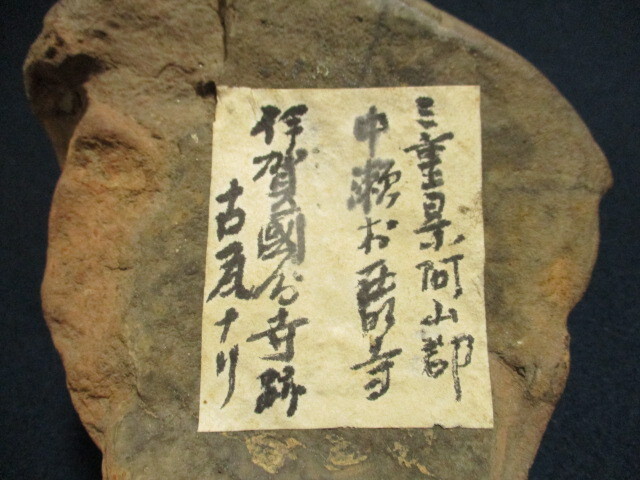 三重県阿山郡
中瀬村西明寺
伊賀國分寺跡
古瓦ナリ